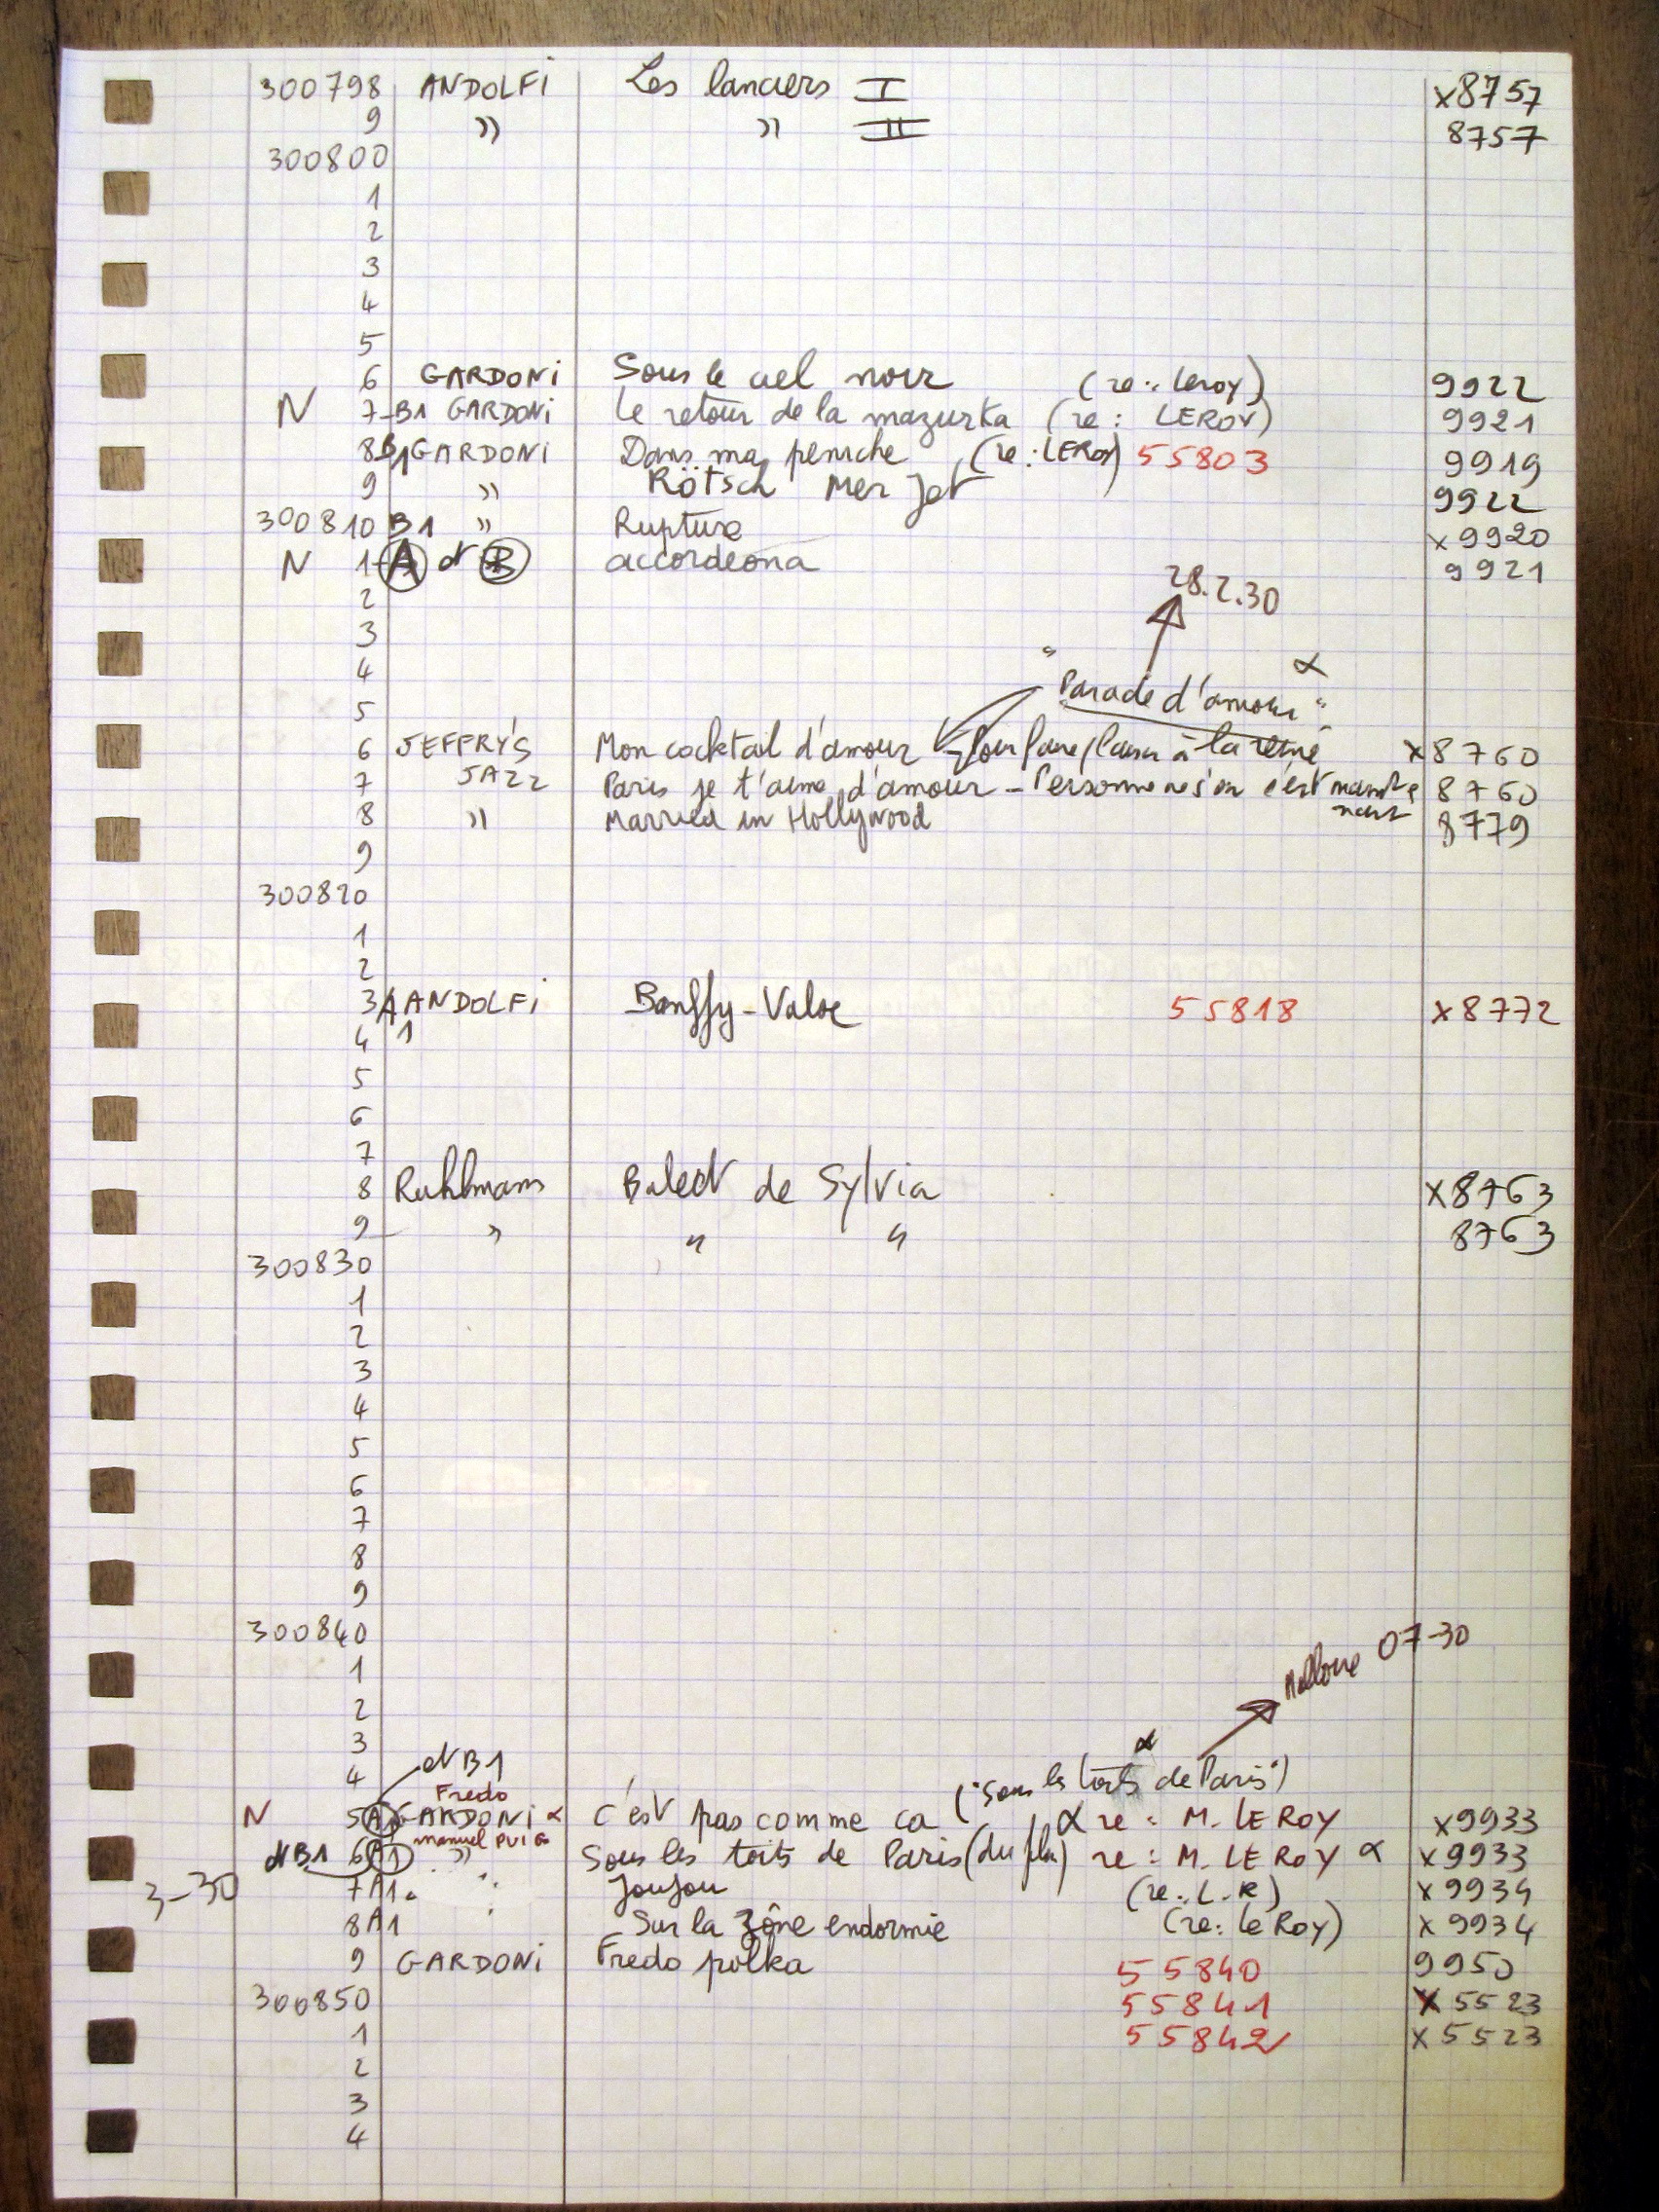 300798 ANDOLFI Les lanciers I x8757
9 " " II 8757
300800
1
2
3
4
5
6 GARDONI Sous le ciel noir (re: Leroy) 9922
N 7-B1 GARDONI Le retour de la mazurka (re: LEROY) 9921
8B1 GARDONI Dans ma peniche (re: LEROY) 55803 9919
9 " 9922
300810 B1 " Rupture x9920
N 1 A et B accordeona 9921
28.2.30
2
3
4
"Parade d'amour" α
5
6 JEFFRY'S Mon cocktail d'amour - Pour faire plaisir à la reine x8760
7 JAZZ Paris je t'aime d'amour - Personne ne s'en sert maintenant 8760
8 " Married in Hollywood 8779
9
300820
1
2
3A1 ANDOLFI Banffy-Valse 55818 x8772
4
5
6
7
8 Ruhlmann Balect de Sylvia x8763
9 " " " 8763
300830
1
2
3
4
5
6
7
8
9
300840
07-30
1
2
3
et B1
4 ("Sous les toits de Paris") α
Fredo
N 5 A1 GARDONI α c'est pas comme ca α re: M. LE ROY x9933
manuel PUIG
et B1 6 A1 " Sous les toits de Paris (du film) re: M. LE ROY α x9933
3-30 7A1 " Joujou (re: L.R) x9934
8A1 " Sur la zône endormie (re: Le Roy) x9934
9 GARDONI Fredo polka 55840 9950
300850 55841 x5523
1 55842 x5523
2
3
4